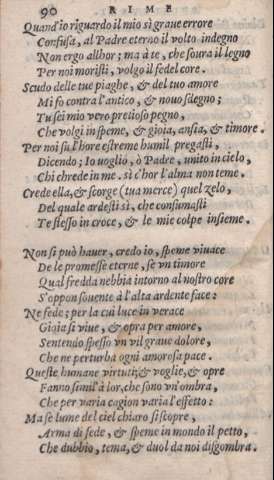 90 RIME
Quand'io riguardo il mio sì graue errore
Confusa, al Padre eterno il volto indegno
Non ergo allhor; ma à te, che soura il legno
Per noi moristi, volgo il fedel core.
Scudo delle tue piaghe, & del tuo amore
Mi fo contra l'antico, & nouo sdegno;
Tu sei mio vero pretioso pegno,
Che volgi in speme, & gioia, ansia, & timore.
Per noi su l'hore estreme humil pregasti,
Dicendo; Io uoglio, ò Padre, unito in cielo,
Chi chrede in me. sì c'hor l'alma non teme.
Crede ella, & scorge (tua mercè) quel zelo,
Del quale ardesti sì, che consumasti
Te stesso in croce, & le mie colpe insieme.
Non si può hauer, credo io, speme viuace
De le promesse eterne, se vn timore
Qual fredda nebbia intorno al nostro core
S'oppon souente à l'alta ardente face:
Ne fede; per la cui luce in verace
Gioia si viue, & opra per amore,
Sentendo spesso vn vil graue dolore,
Che ne perturba ogni amorosa pace.
Queste humane virtuti; & voglie, & opre
Fanno simil'à lor, che sono vn'ombra,
Che per varia cagion varia l'effetto:
Ma se lume del ciel chiaro si scopre,
Arma di fede, & speme in mondo il petto,
Che dubbio, tema, & duol da noi disgombra.